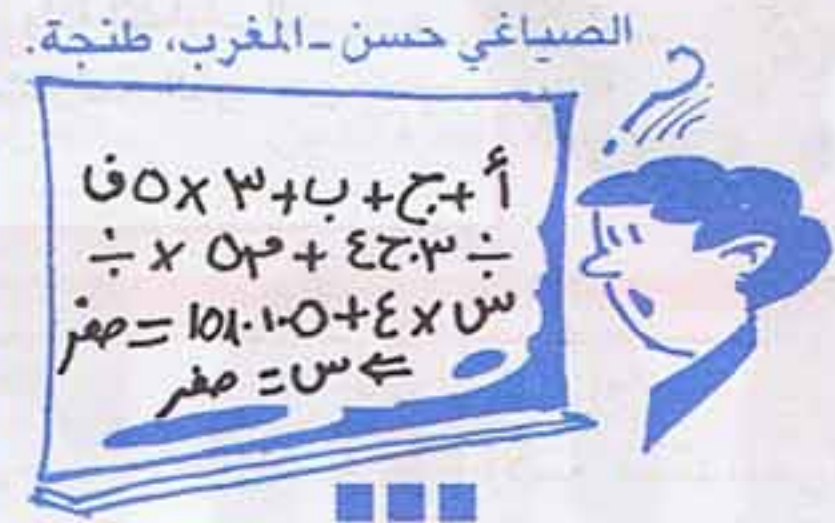 الصياغي حسن - المغرب، طنجة.
أ + ج + ب + ٣ × ٥ ف
÷ ٣٠ ج ٤ + ٥٣ × ÷
س × ٤ + ١٥٨٠١٠٥ = صفر
⇐ س = صفر